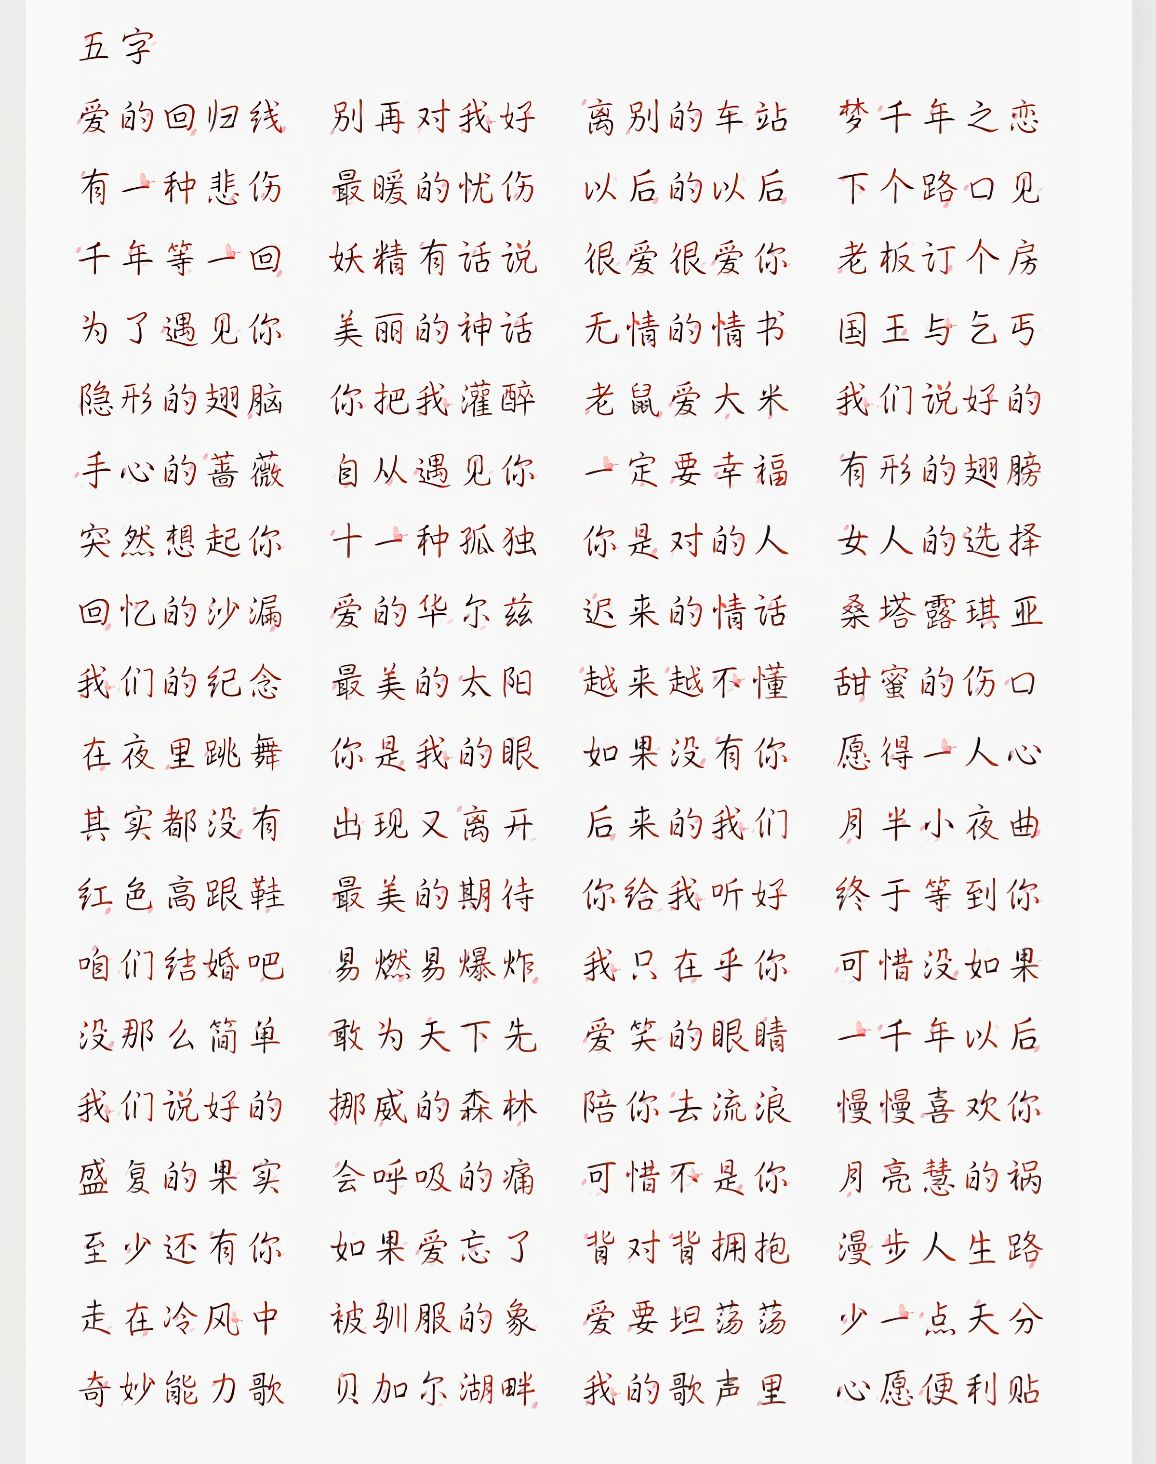 五字
爱的回归线 别再对我好 离别的车站 梦千年之恋
有一种悲伤 最暖的忧伤 以后的以后 下个路口见
千年等一回 妖精有话说 很爱很爱你 老板订个房
为了遇见你 美丽的神话 无情的情书 国王与乞丐
隐形的翅脑 你把我灌醉 老鼠爱大米 我们说好的
手心的蔷薇 自从遇见你 一定要幸福 有形的翅膀
突然想起你 十一种孤独 你是对的人 女人的选择
回忆的沙漏 爱的华尔兹 迟来的情话 桑塔露琪亚
我们的纪念 最美的太阳 越来越不懂 甜蜜的伤口
在夜里跳舞 你是我的眼 如果没有你 愿得一人心
其实都没有 出现又离开 后来的我们 月半小夜曲
红色高跟鞋 最美的期待 你给我听好 终于等到你
咱们结婚吧 易燃易爆炸 我只在乎你 可惜没如果
没那么简单 敢为天下先 爱笑的眼睛 一千年以后
我们说好的 挪威的森林 陪你去流浪 慢慢喜欢你
盛复的果实 会呼吸的痛 可惜不是你 月亮慧的祸
至少还有你 如果爱忘了 背对背拥抱 漫步人生路
走在冷风中 被驯服的象 爱要坦荡荡 少一点天分
奇妙能力歌 贝加尔湖畔 我的歌声里 心愿便利贴